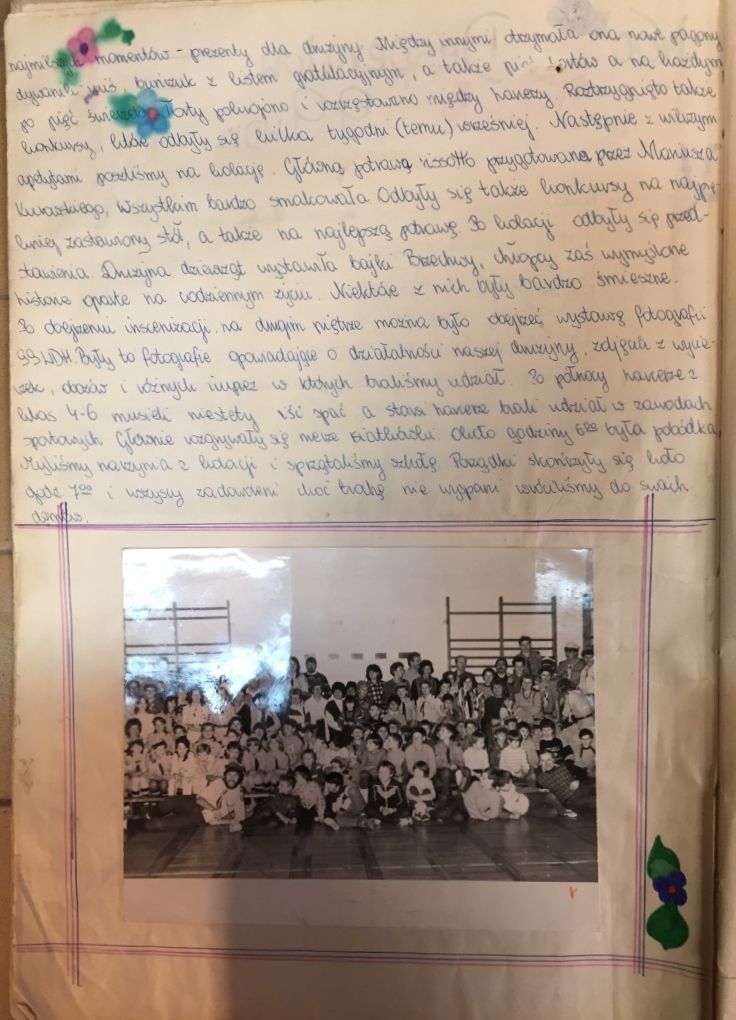 najmilszych momentów - prezenty dla drużyny. Między innymi otrzymała ona nowe pagony
dywanik, buńczuk z listem gratulacyjnym, a także pięć tortów a na każdym
po pięć świeczek. Torty pokrojono i wszystkich między harcerzy. Roztrzygnięto także
konkursy, które odbyły się kilka tygodni (temu) wcześniej. Następnie z wilczym
apetytami poszliśmy na kolację. Główną potrawą risotto przygotowaną przez Mariusza
Kuraszkiego, wszystkim bardzo smakowała. Odbyły się także konkursy na najpię-
kniej zastawiony stół, a także na najlepszą potrawę. Po kolacji odbyły się przed-
stawienia. Drużyna dziewcząt wystawiła bajki Brzechwy, chłopcy zaś wymyślone
historie oparte na codziennym życiu. Niektóre z nich były bardzo śmieszne.
Po obejrzeniu inscenizacji na drugim piętrze można było obejrzeć wystawę fotografii
99 ŁDH. Były to fotografie opowiadające o działalności naszej drużyny, zdjęcia z wycie-
czek, obozów i różnych imprez w których braliśmy udział. Po północy harcerze z
klas 4-6 musieli niestety iść spać a starsi harcerze brali udział w zawodach
sportowych. Głównie rozgrywały się mecze siatkówki. Około godziny 6⁰⁰ była pobódka.
Myliśmy naczynia z kolacji i sprzątaliśmy szkołę. Porządki skończyły się koło
godz. 7⁰⁰ i wszyscy zadowoleni choć trochę nie wyspani wróciliśmy do swoich
domów.